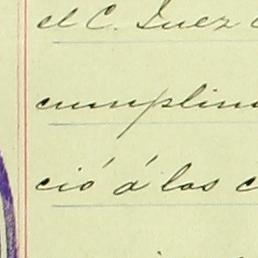 el C. Juez
cumplim
ció á los c